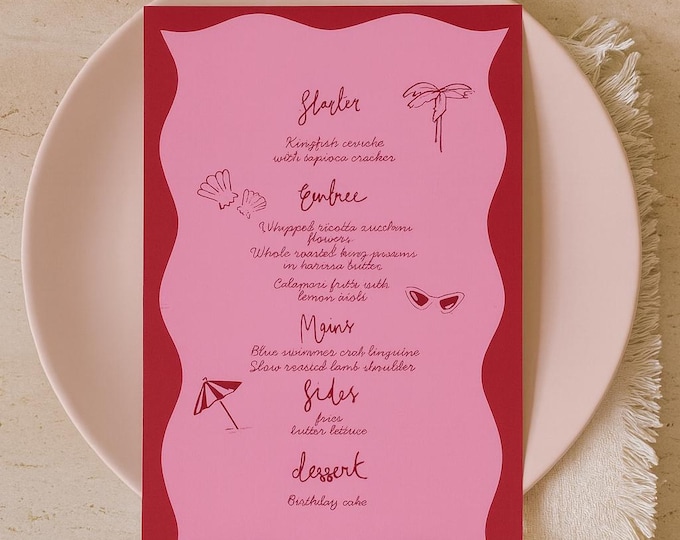 Starter
Kingfish ceviche
with tapioca cracker
Entree
Whipped ricotta zucchini
flowers
Whole roasted king prawns
in harissa butter
Calamari fritti with
lemon aioli
Mains
Blue swimmer crab linguine
Slow roasted lamb shoulder
Sides
fries
butter lettuce
dessert
Birthday cake